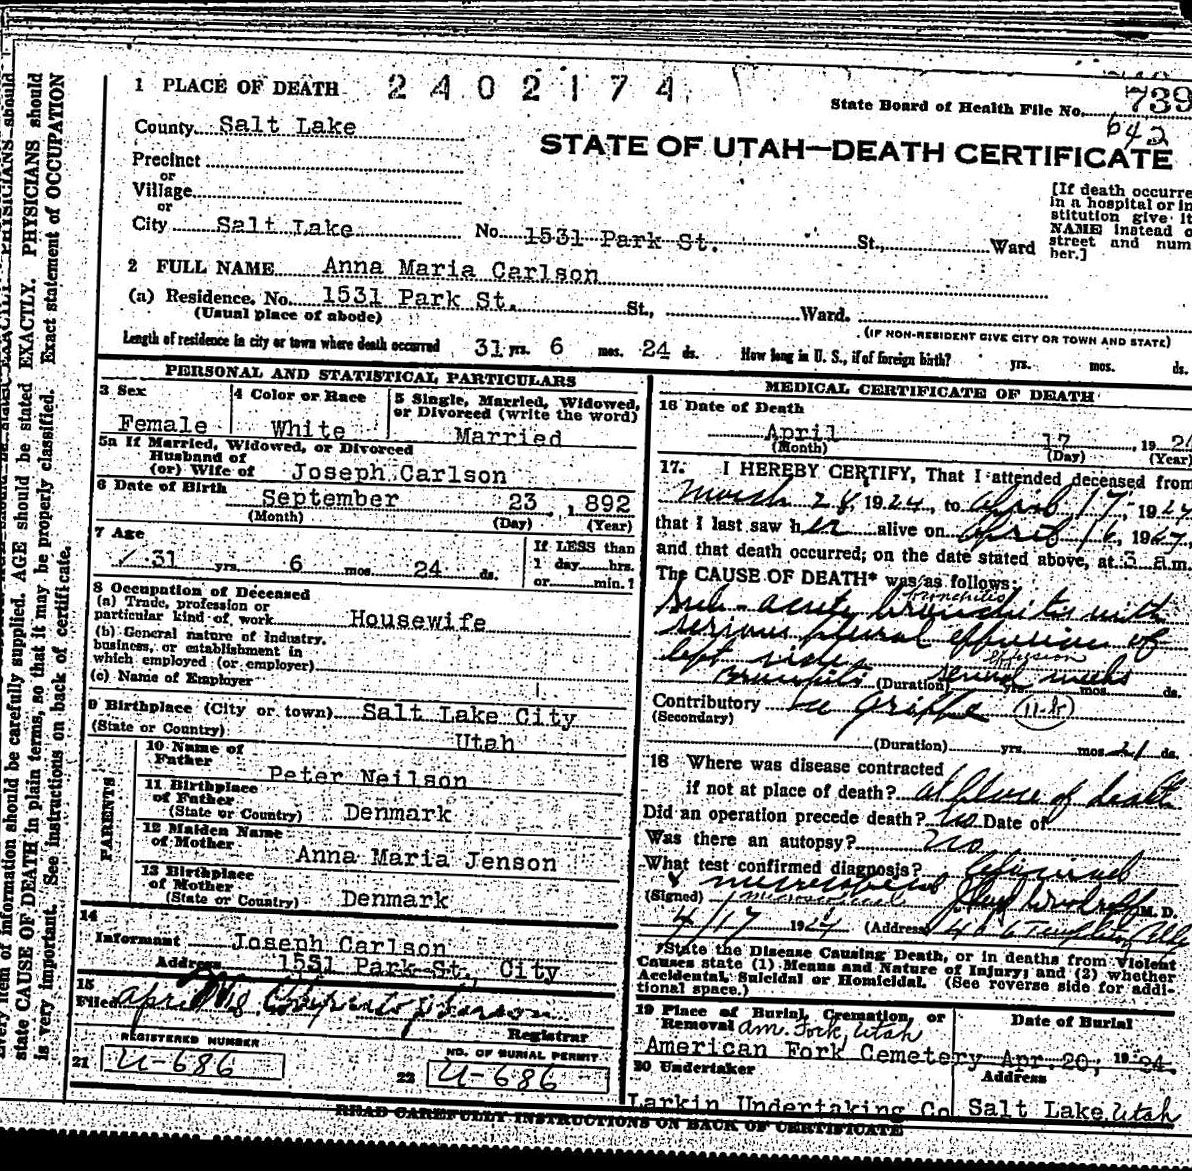 1 PLACE OF DEATH 2402174
State Board of Health File No. 739
642
County Salt Lake
STATE OF UTAH—DEATH CERTIFICATE
Precinct
or
Village
or
City Salt Lake No. 1531 Park St. St., Ward
[If death occurre
in a hospital or in
stitution give it
NAME instead o
street and num
ber.]
2 FULL NAME Anna Maria Carlson
(a) Residence, No. 1531 Park St. St., Ward.
(Usual place of abode)
(IF NON-RESIDENT GIVE CITY OR TOWN AND STATE)
Length of residence in city or town where death occurred 31 yrs. 6 mos. 24 ds. How long in U. S., if of foreign birth? yrs. mos. ds.
PERSONAL AND STATISTICAL PARTICULARS
3 Sex
Female
4 Color or Race
White
5 Single, Married, Widowed,
or Divorced (write the word)
Married
5a If Married, Widowed, or Divorced
Husband of
(or) Wife of Joseph Carlson
6 Date of Birth
September 23, 1892
(Month) (Day) (Year)
7 Age
31 yrs. 6 mos. 24 ds.
If LESS than
1 day hrs.
or min.?
8 Occupation of Deceased
(a) Trade, profession or
particular kind of work Housewife
(b) General nature of industry,
business, or establishment in
which employed (or employer)
(c) Name of Employer
9 Birthplace (City or town) Salt Lake City
(State or Country) Utah
PARENTS
10 Name of
Father Peter Neilson
11 Birthplace
of Father
(State or Country) Denmark
12 Maiden Name
of Mother Anna Maria Jenson
13 Birthplace
of Mother
(State or Country) Denmark
14
Informant Joseph Carlson
Address 1531 Park St., City
15
Filed April
Registrar
REGISTERED NUMBER
21 U-686
NO. OF BURIAL PERMIT
22 U-686
MEDICAL CERTIFICATE OF DEATH
16 Date of Death
April 17, 192
(Month) (Day) (Year)
17. I HEREBY CERTIFY, That I attended deceased from
March 28, 1924, to April 17, 1924
that I last saw her alive on April 16, 19
and that death occurred; on the date stated above, at 3 a.m.
The CAUSE OF DEATH* was as follows:
bronchitis
Sub-acute bronchitis with
serious plural effusion of
left side
effusion
(Duration) several weeks yrs. mos. ds.
Contributory La Grippe 11-b
(Secondary)
(Duration) yrs. mos. 21 ds.
18 Where was disease contracted
if not at place of death? at place of death
Did an operation precede death? No Date of
Was there an autopsy? No
What test confirmed diagnosis? Clinical
(Signed) M. D.
4/17 1924 (Address)
*State the Disease Causing Death, or in deaths from Violent
Causes state (1) Means and Nature of Injury; and (2) whether
Accidental, Suicidal or Homicidal. (See reverse side for addi-
tional space.)
19 Place of Burial, Cremation, or
Removal Am. Fork, Utah
American Fork Cemetery
Date of Burial
Apr. 20, 1924.
20 Undertaker
Larkin Undertaking Co
Address
Salt Lake, Utah
READ CAREFULLY INSTRUCTIONS ON BACK OF CERTIFICATE
very item of information should be carefully supplied. AGE should be stated EXACTLY. PHYSICIANS should
state CAUSE OF DEATH in plain terms, so that it may be properly classified. Exact statement of OCCUPATION
is very important. See instructions on back of certificate.